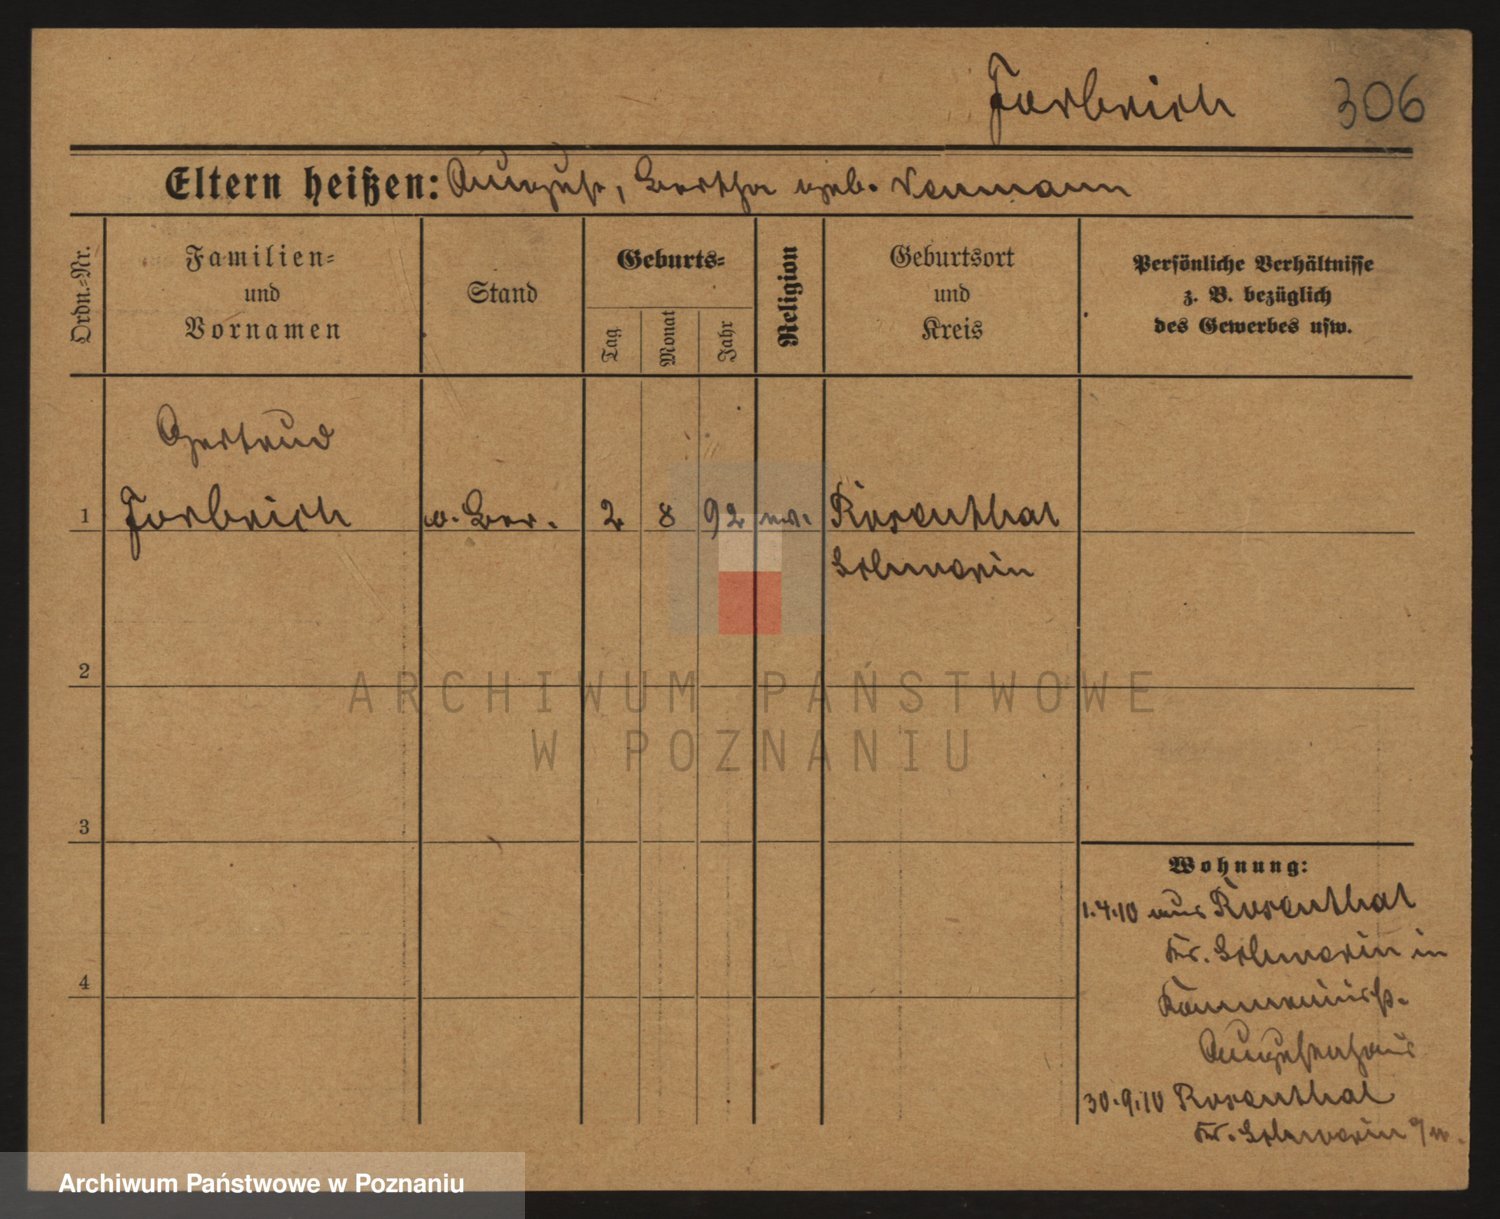 Forbrich 306
Eltern heißen: August, Bertha geb. Neumann
Ordn.=Nr.
Familien=
und
Vornamen
Stand
Geburts=
Tag
Monat
Jahr
Religion
Geburtsort
und
Kreis
Persönliche Verhältnisse
z. B. bezüglich
des Gewerbes usw.
Gertrud
1 Forbrich o. Ber. 2 8 92 ev. Rosenthal
Schwerin
2
ARCHIWUM PAŃSTWOWE
W POZNANIU
3
Wohnung:
1.4.10 aus Rosenthal
Kr. Schwerin in
4
Augustenhaus
30.9.10 Rosenthal
Kr. Schwerin a/W.
Archiwum Państwowe w Poznaniu